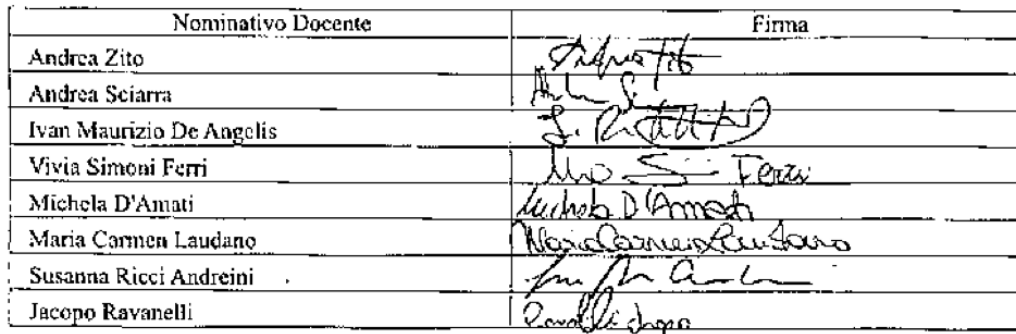 Nominativo Docente Firma
Andrea Zito
Andrea Sciarra
Ivan Maurizio De Angelis
Vivia Simoni Ferri Ferri
Michela D'Amati Michela D'Amati
Maria Carmen Laudano Maria Carmen Laudano
Susanna Ricci Andreini
Jacopo Ravanelli